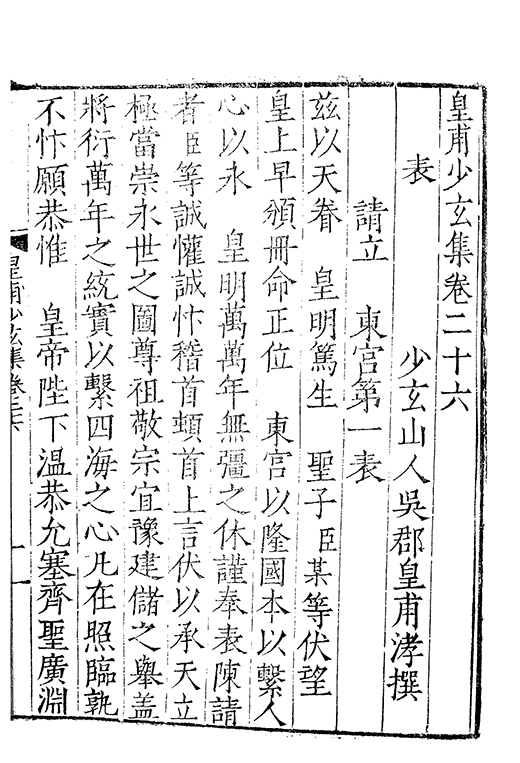 皇甫少玄集卷二十六
少玄山人吳郡皇甫涍撰
表
請立　東宮第一表
兹以天眷　皇明篤生　聖子臣某等伏望
皇上早頒冊命正位　東宮以隆國本以繫人
心以永　皇明萬萬年無彊之休謹奉表陳請
者臣等誠懽誠忭稽首頓首上言伏以承天立
極當崇永世之圖尊祖敬宗宜豫建儲之舉盖
將衍萬年之統實以繫四海之心凡在照臨孰
不忭願恭惟　皇帝陛下溫恭允塞齊聖廣淵
皇甫少玄集卷二六　一